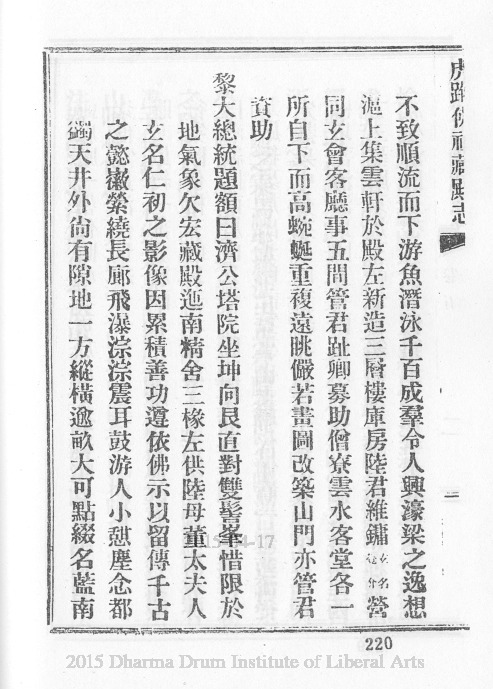 虎跑佛祖藏殿志
不致順流而下游魚潛泳千百成羣令人興濠梁之逸想
滬上集雲軒於殿左新造三層樓庫房陸君維鏞營
同玄會客廳事五間管君趾卿募助僧寮雲水客堂各一
所自下而高蜿蜒重複遠眺儼若畫圖改築山門亦管君
資助
黎大總統題額曰濟公塔院坐坤向艮直對雙髻峯惜限於
地氣象欠宏藏殿迤南精舍三椽左供陸母董太夫人
玄名仁初之影像因累積善功遵依佛示以留傳千古
之懿徽縈繞長廊飛瀑淙淙震耳鼓游人小憩塵念都
蠲天井外尚有隙地一方縱橫逾畝大可點綴名藍南
一
220
2015 Dharma Drum Institute of Liberal Arts